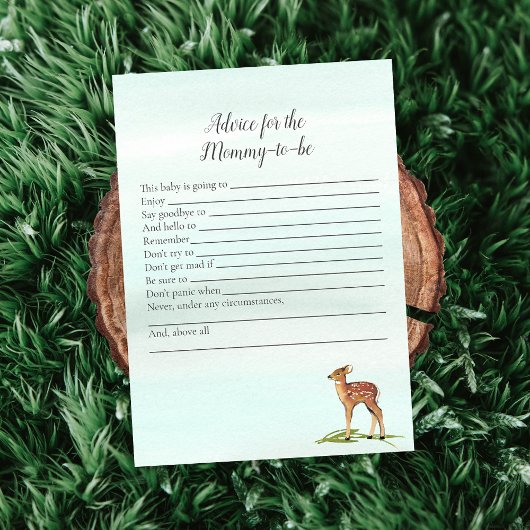 Advice for the
Mommy-to-be
This baby is going to
Enjoy
Say goodbye to
And hello to
Remember
Don't try to
Don't get mad if
Be sure to
Don't panic when
Never, under any circumstances,
And, above all